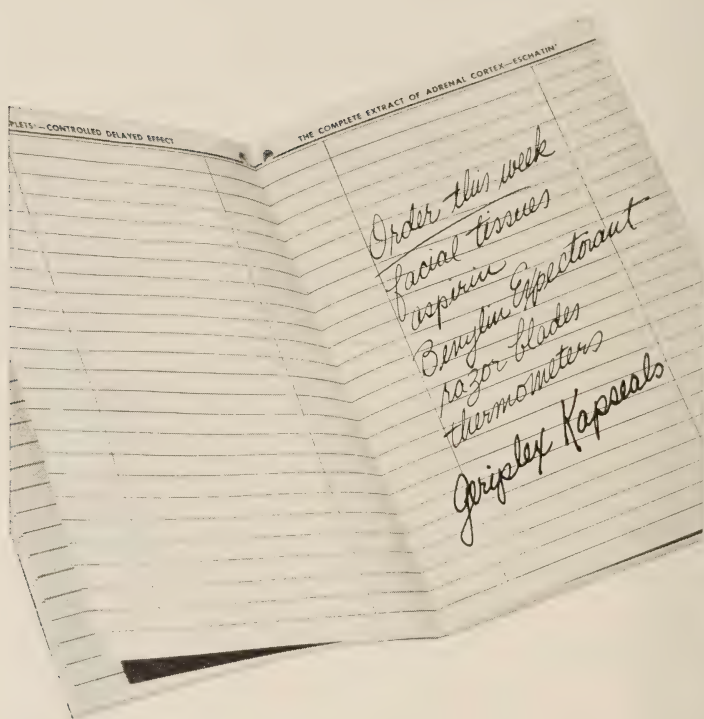 PLETS'—CONTROLLED DELAYED EFFECT
THE COMPLETE EXTRACT OF ADRENAL CORTEX—ESCHATIN'
Order this week
facial tissues
aspirin
Benylin Expectorant
razor blades
thermometers
Geriplex Kapseals